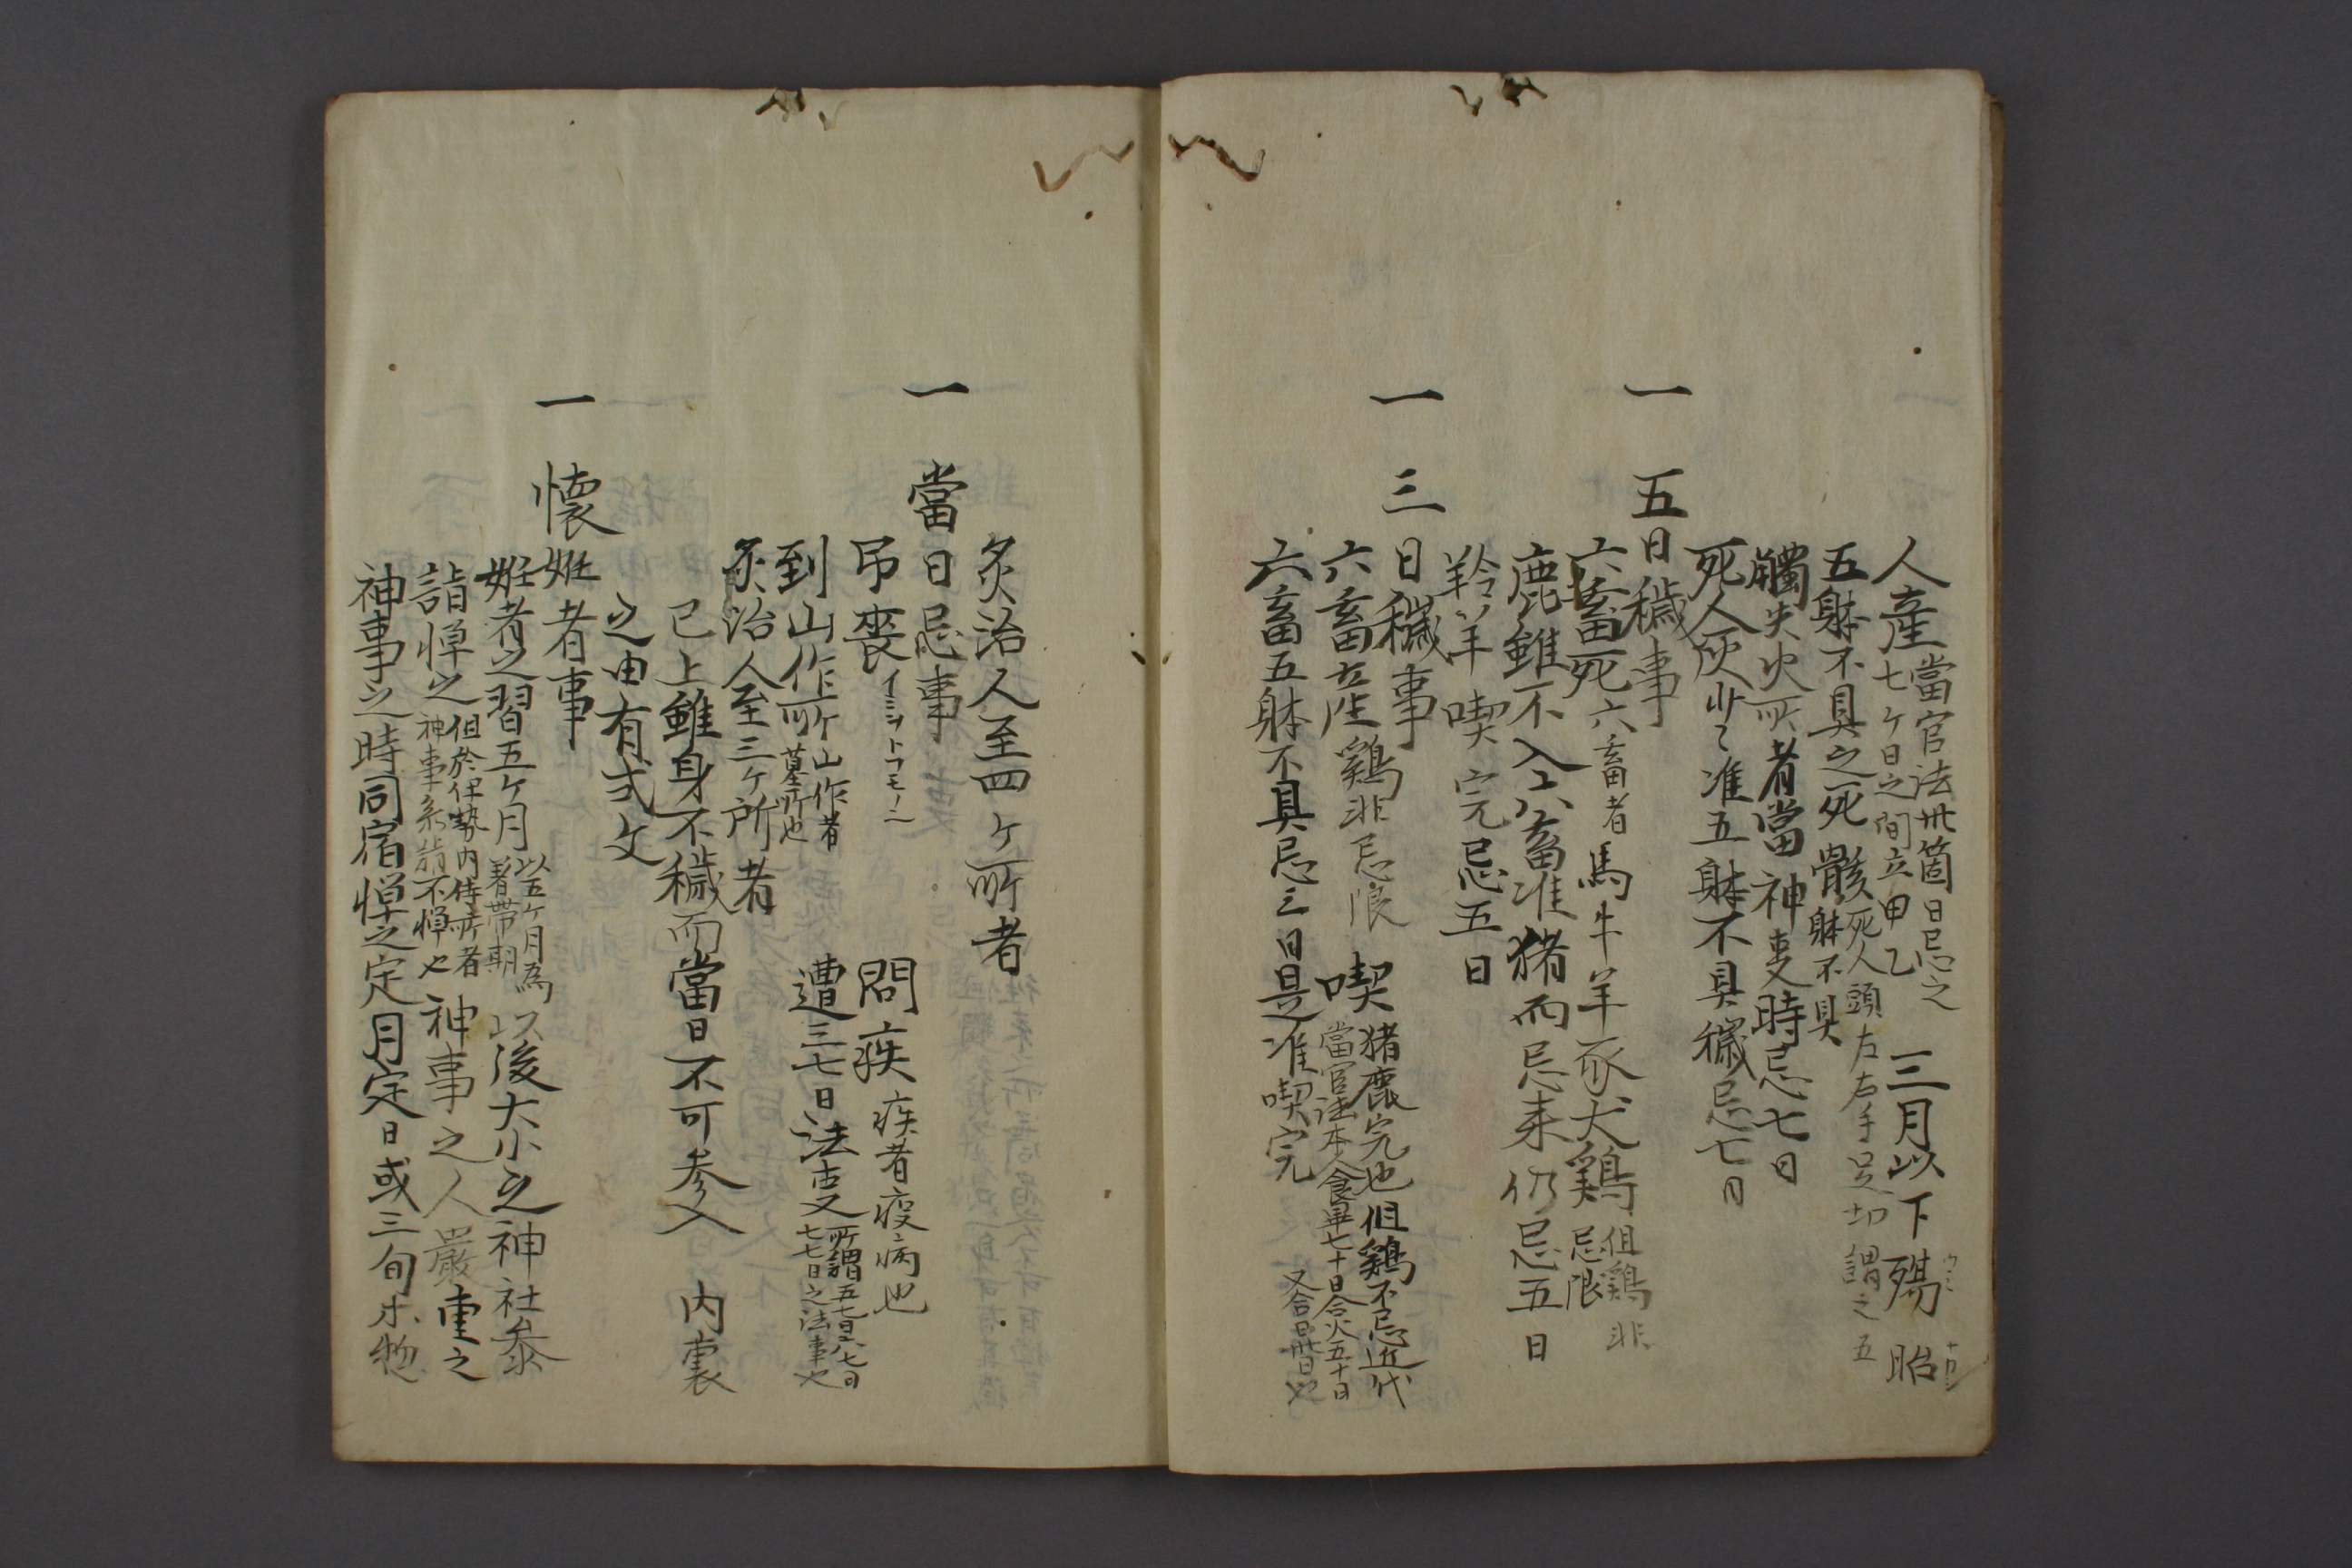 人産 當官法卅箇日忌之 七ケ日之間立甲乙 三月以下殤胎
五躰不具之死骸 死人頭左右手足切謂之五 躰不具
觸失火所者當神事時忌七日
死人灰准五躰不具穢忌七日
一 五日穢事
六畜死 六畜者馬牛羊豕犬鶏 但鶏非 忌限
鹿雖不入六畜准猪而忌来仍忌五日
羚羊喫完忌五日
一 三日穢事
六畜産 鶏非忌限 喫 猪鹿完也但鶏不忌近代 當官法本人食畢七十日合火五十日 又合日卅日也
六畜五躰不具忌三日是准喫完
炙治人至四ケ所者
一 當日忌事
吊喪 問疾 疾者疫病也
到山作所 山作者 墓所也 遭三七日法事 所謂五七日六七日 七七日之法事也
炙治人至三ケ所者
已上雖身不穢而當日不可参入 内裏
之由有式文
一 懐妊者事
妊者之習五ケ月 以五ケ月為 着帯期 以後大小之神社参
詣憚之 但於伊勢内侍所者 神事不憚也 神事之人嚴重之
神事之時同宿憚之定月定日或三旬